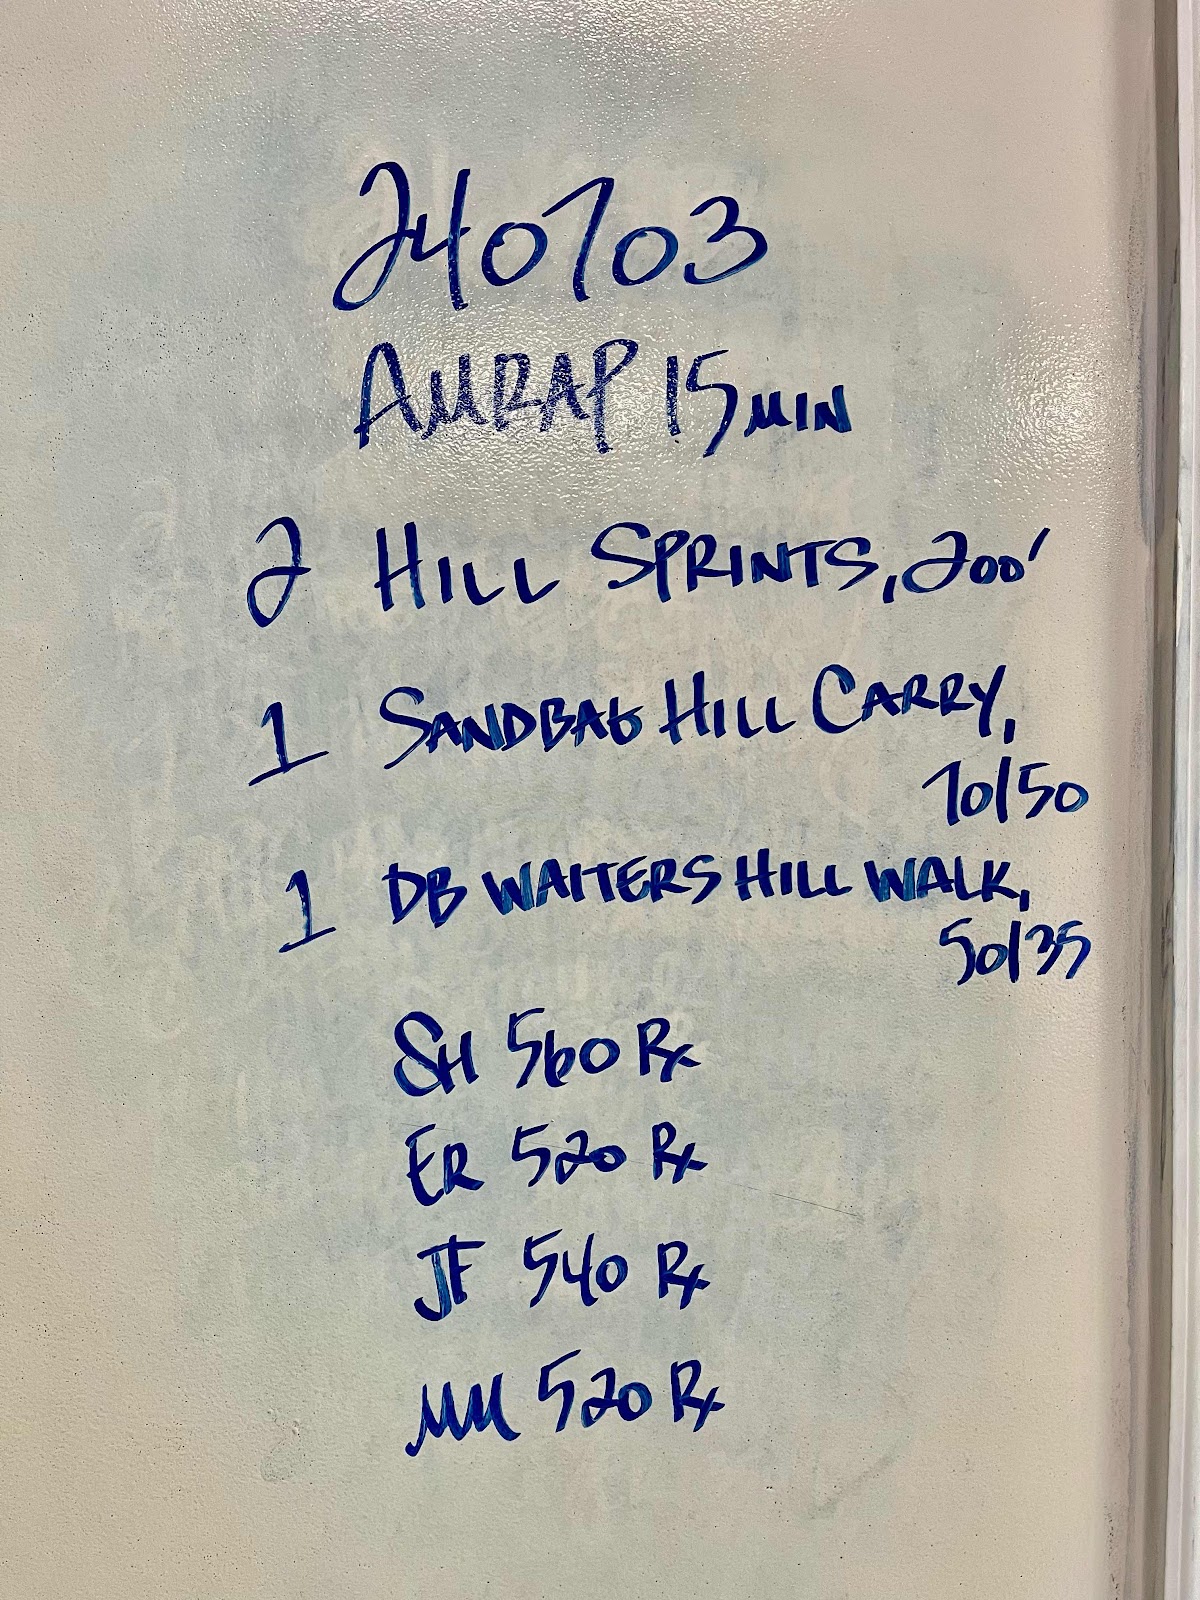 240703
AMRAP 15 MIN
2 HILL SPRINTS, 200'
1 SANDBAG HILL CARRY,
70/50
1 DB WAITERS HILL WALK,
50/35
SH 560 Rx
ER 520 Rx
JF 540 Rx
MM 520 Rx